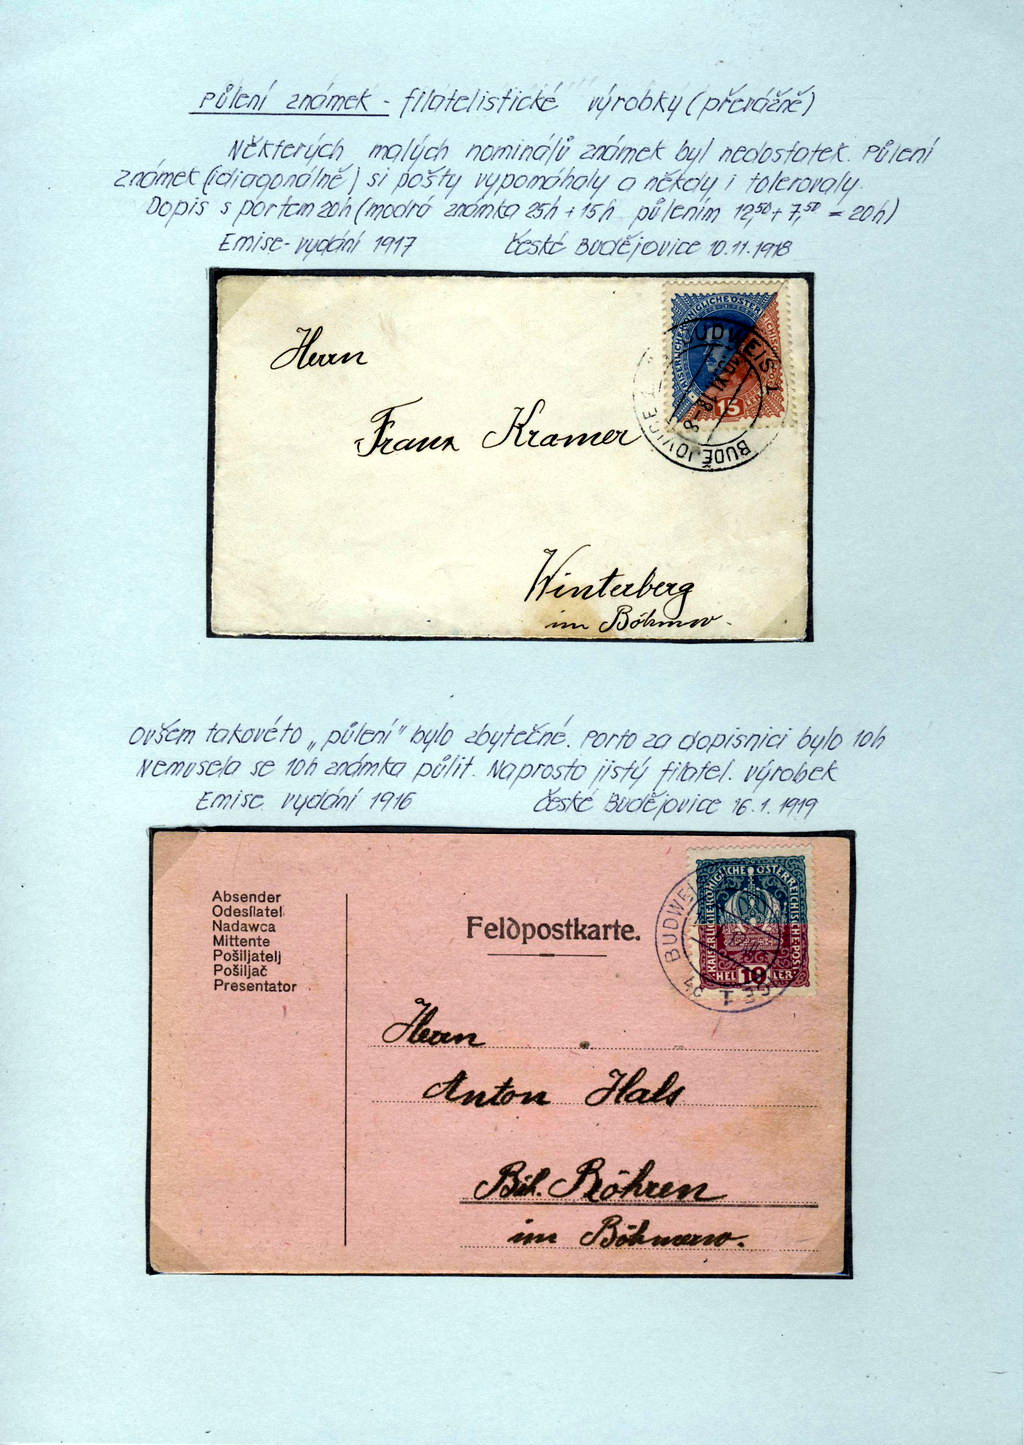 Půlení známek - filatelistické výrobky (převážně)
Některých malých nominálů známek byl nedostatek. Půlení
známek (idiagonálně) si pošty vypomáhaly a někdy i tolerovaly.
Dopis s portem 20h (modrá známka 25h + 15h půlením 12,50 + 7,50 = 20h)
Emise - vydání 1917 České Budějovice 10.11.1918
KAISERLICHE KÖNIGLICHE ÖSTERREICHISCHE
15
BUDWEIS 1
10.XI.18
BUDĚJOVICE
Herrn
Franz Kramer
Winterberg
im Böhmerw.
Ovšem takovéto „půlení" bylo zbytečné. Porto za dopisnici bylo 10h
Nemusela se 10h známka půlit. Naprosto jistý filatel. výrobek
Emise vydání 1916 České Budějovice 16.1.1919
Absender
Odesílatel
Nadawca
Mittente
Pošiljatelj
Pošiljač
Presentator
Feldpostkarte.
KAISERLICHE KÖNIGLICHE ÖSTERREICHISCHE POST
HELLER
10
BUDWEIS
Herrn
Anton Hals
Böh. Röhren
im Böhmerw.